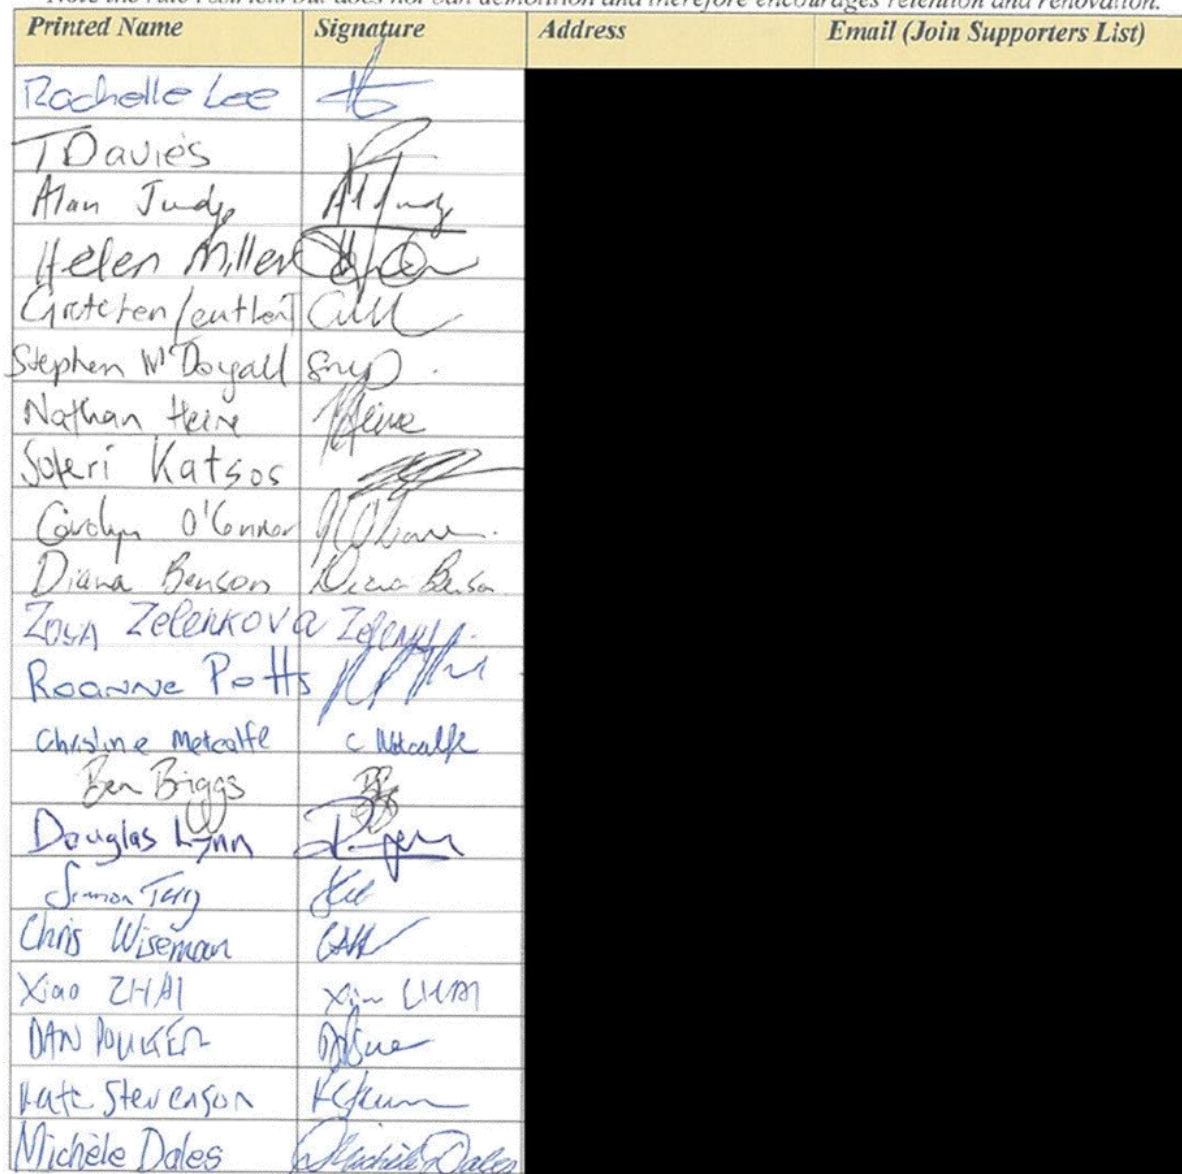 Note the rule restricts but does not ban demolition and therefore encourages retention and renovation.
Printed Name Signature Address Email (Join Supporters List)
Rachelle Lee
T Davies
Alan Judge
Helen Miller
Gretchen
Stephen McDougall
Nathan Heine Heine
Katsos
Carolyn O'Connor
Diana Benson Diana Benson
Zoya Zelenkova
Roanne Potts
Christine Metcalfe C Metcalfe
Ben Briggs BB
Douglas Lynn
Simon
Chris Wiseman
Xiao ZHAI
DAN
Kate Stevenson
Michèle Dales Michèle Dales